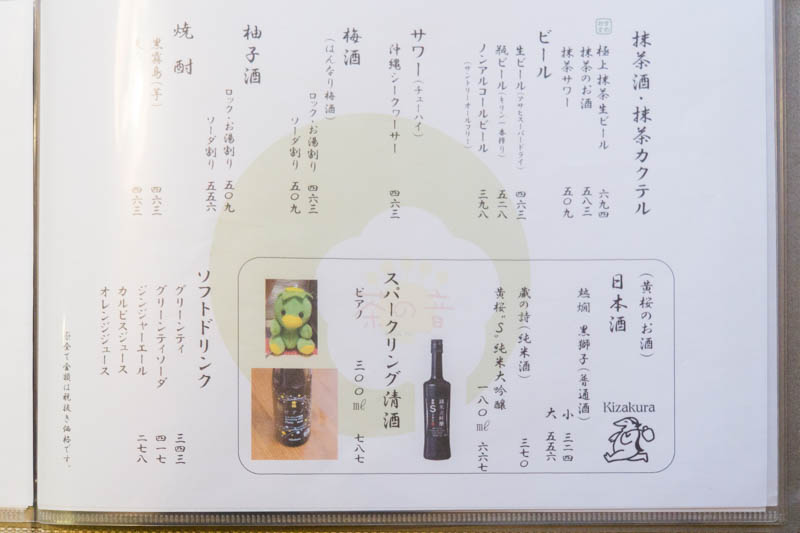 抹茶酒・抹茶カクテル
極上抹茶生ビール 六九四
抹茶のお酒 五八三
抹茶サワー 五〇九
ビール
生ビール(アサヒスーパードライ) 四六三
瓶ビール(キリン一番搾り) 五二八
ノンアルコールビール 三九八
(サントリーオールフリー)
サワー(チューハイ)
沖縄シークワーサー 四六三
梅酒
(はんなり梅酒)
ロック・お湯割り 四六三
ソーダ割り 五〇九
柚子酒
ロック・お湯割り 五〇九
ソーダ割り 五五六
焼酎
黒霧島(芋) 四六三
四六三
(黄桜のお酒)
日本酒
熱燗 黒獅子(普通酒)
小 三二四
大 五五六
蔵の詩(純米酒) 三七〇
黄桜"S"純米大吟醸
一八〇㎖ 六六七
Kizakura
スパークリング清酒
ピアノ 三〇〇㎖ 七八七
茶の音
ソフトドリンク
グリーンティ 三四三
グリーンティソーダ 四一七
ジンジャーエール 二七八
カルピスジュース
オレンジジュース
※全て金額は税抜き価格です。